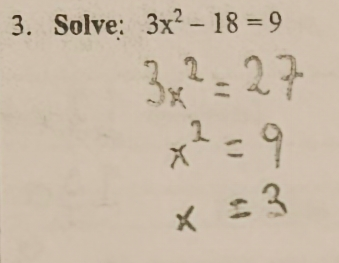 3. Solve: 3x² – 18 = 9
3x² = 27
x² = 9
x = 3